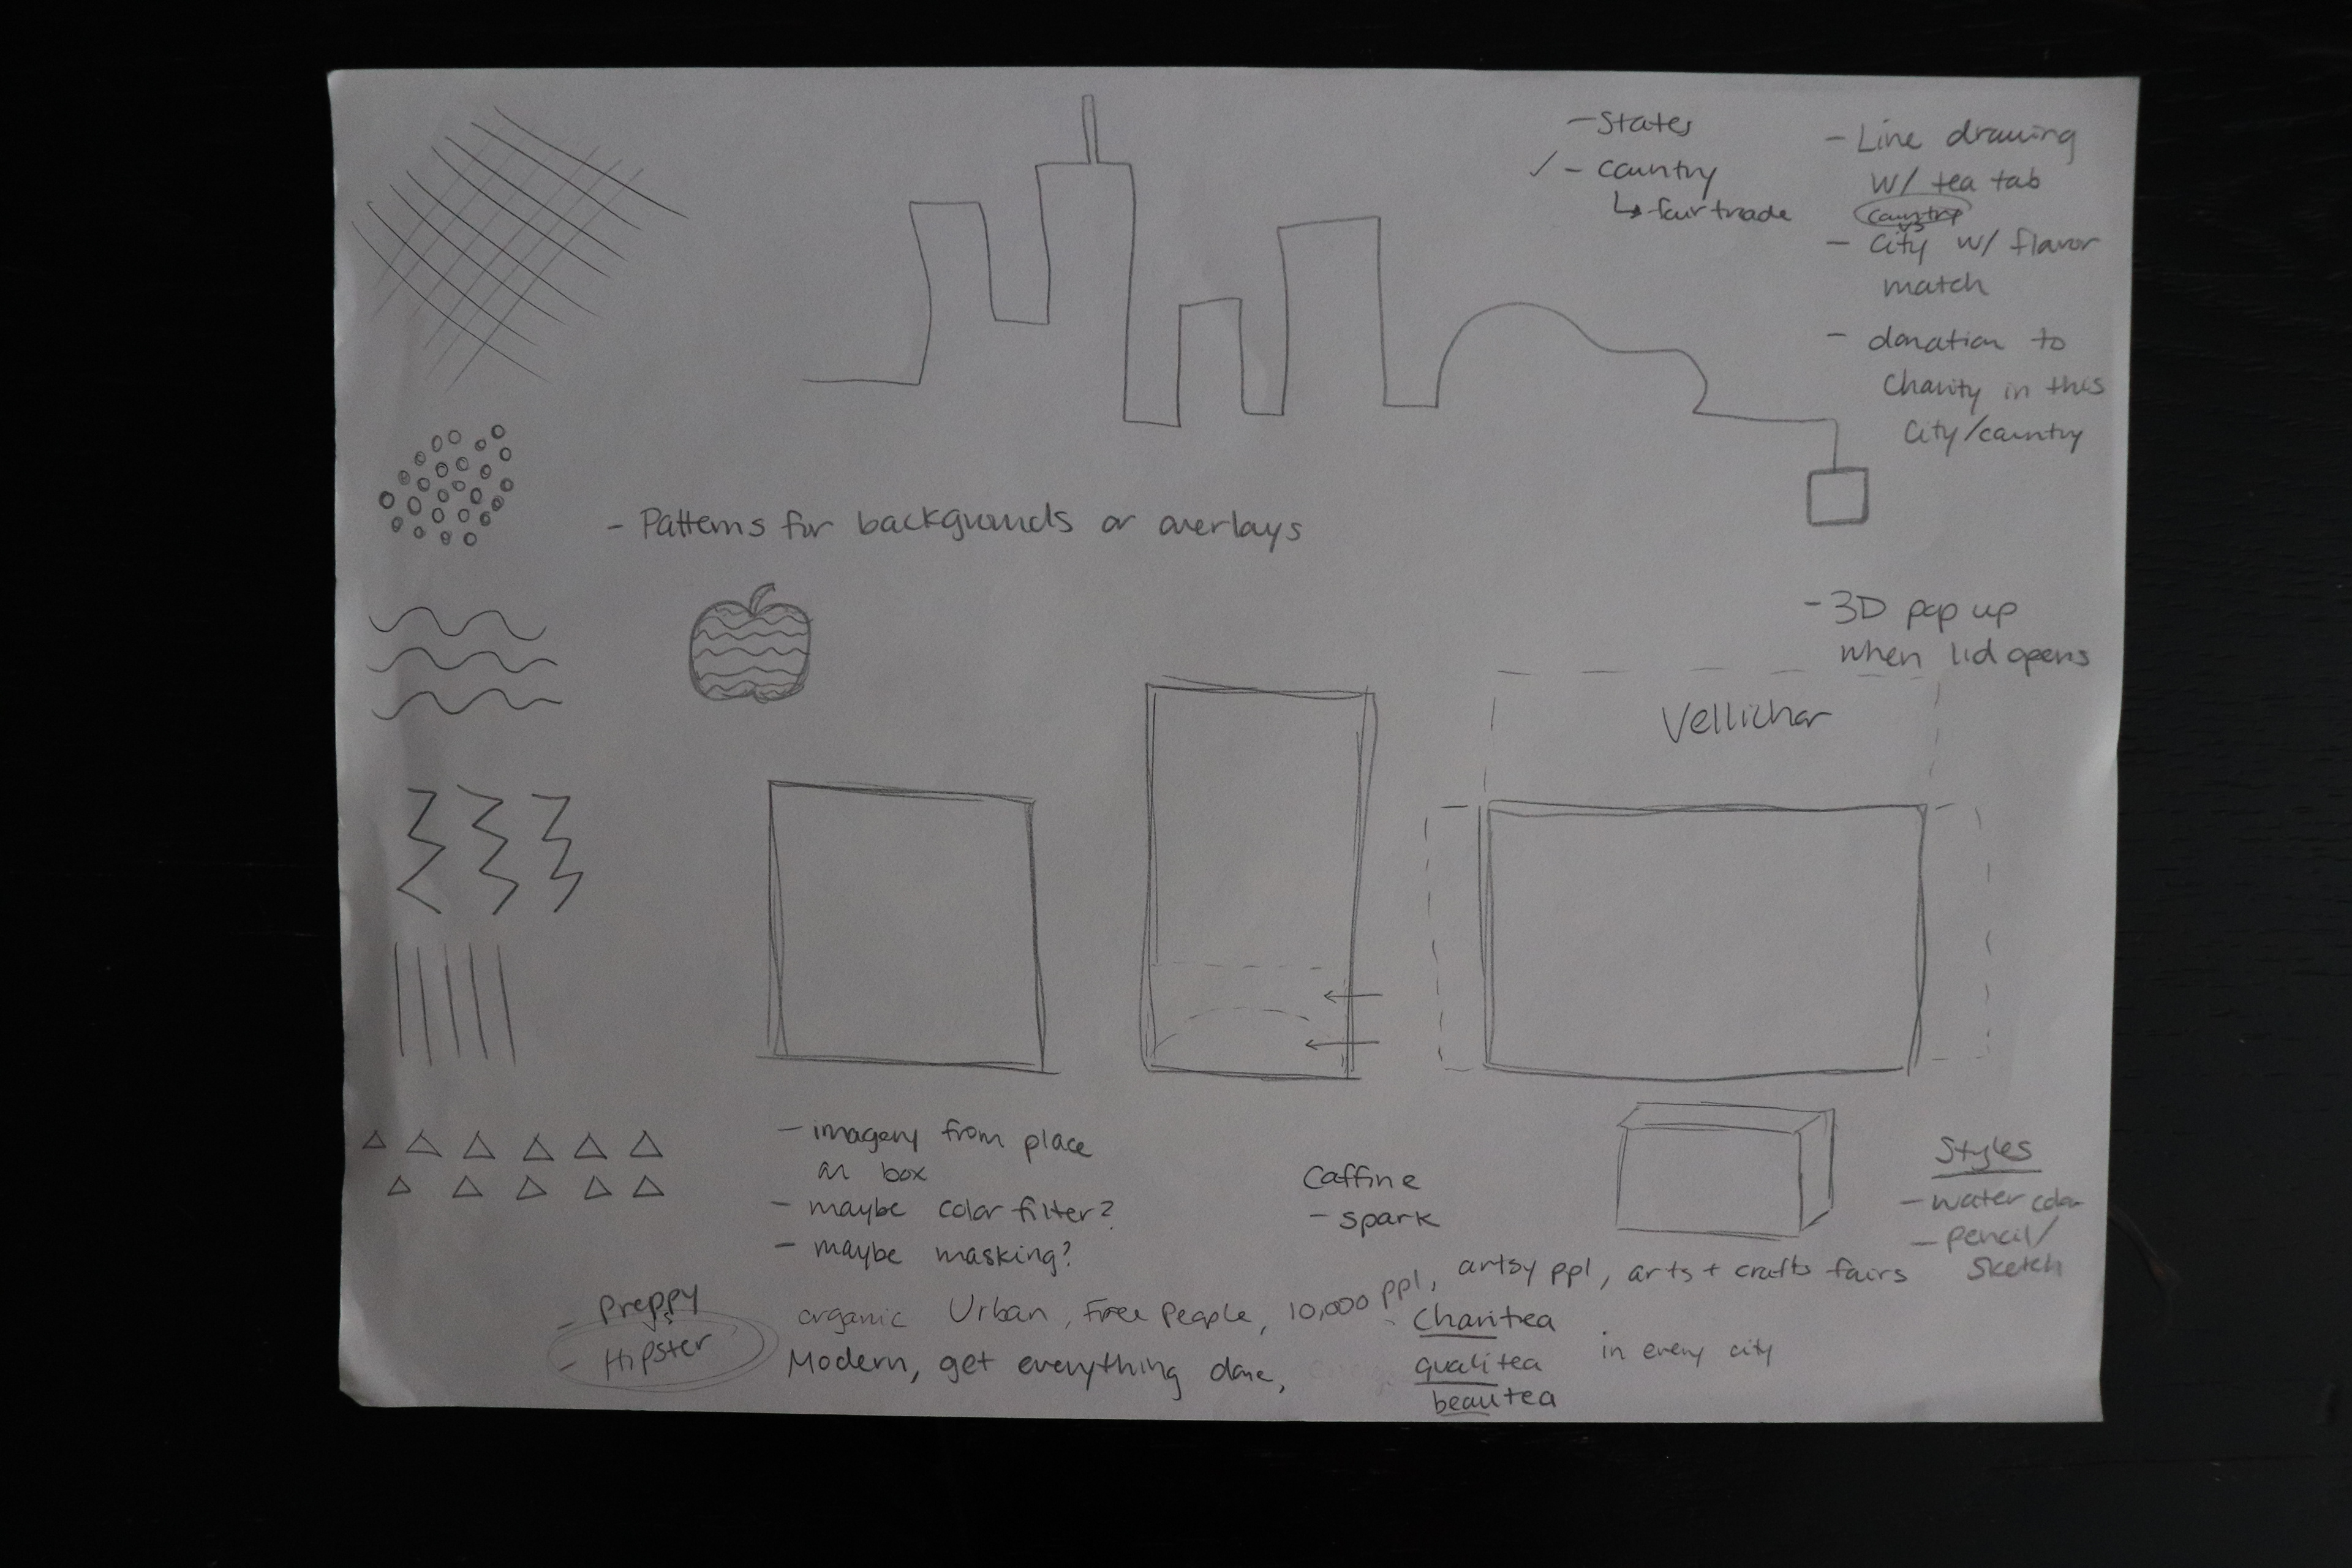 - States
✓ - country
↳ fair trade
- Line drawing
w/ tea tab
country
vs
- city w/ flavor
match
- donation to
Charity in this
City/country
- Patterns for backgrounds or overlays
- 3D pop up
when lid opens
Vellichor
- imagery from place
on box
- maybe color filter?
- maybe masking?
Caffine
- spark
Styles
- water color
- pencil/
sketch
- Preppy
vs
- Hipster
organic Urban, Free People, 10,000 ppl, artsy ppl, arts + crafts fairs
Modern, get everything done,
- Charitea
qualitea
beautea
in every city